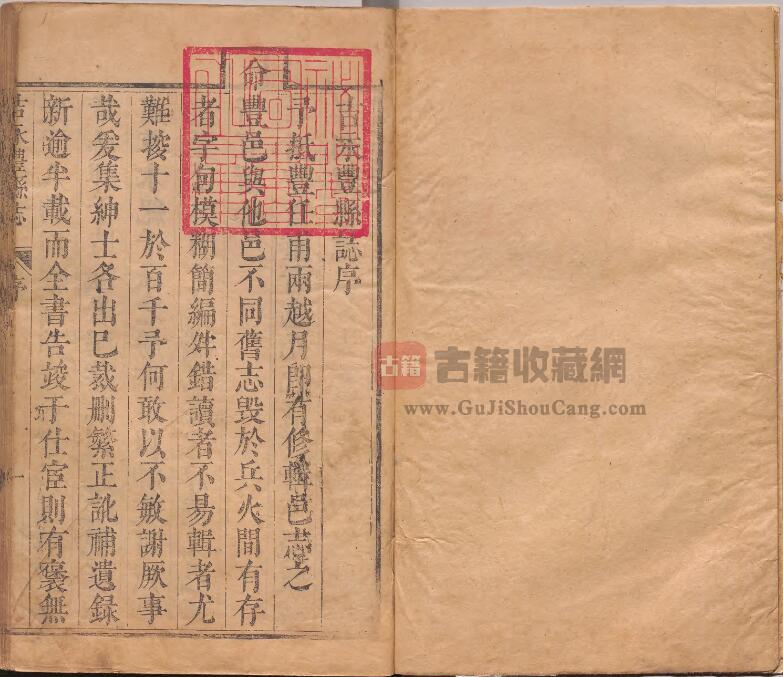 吉永豐縣誌序
予抵豐任甫兩越月卽有修輯邑志之
命豐邑與他邑不同舊志毀於兵火間有存
者字句模糊簡編舛錯讀者不易輯者尤
難按十一於百千予何敢以不敏謝厥事
哉爰集紳士各出巳裁刪繁正訛補遺錄
新逾半載而全書告竣于仕宦則有褒無
吉永豐縣志
序
一
古籍
古籍收藏網
www.GuJiShouCang.com